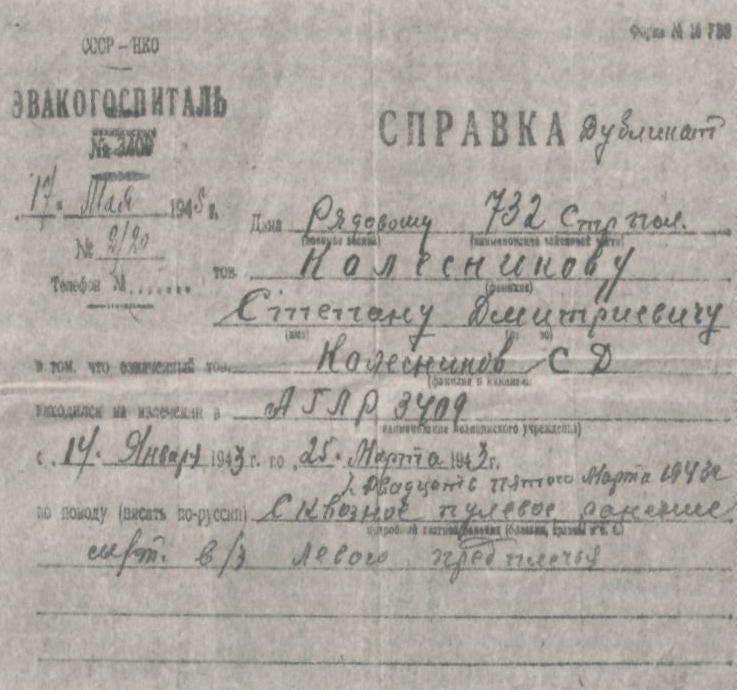 Форма № 16 733
СССР – НКО
ЭВАКОГОСПИТАЛЬ
№ 3409
СПРАВКА Дубликат
17 " Мая 1945 г.
Дана Рядовому 732 Стр пол.
№ 2/20
(воинское звание) (наименование войсковой части)
Телефон №.......
тов. Колесникову
(фамилия)
Степану Дмитриевичу
(имя)
в том, что означенный тов. Колесников С Д
(фамилия и инициалы)
находился на излечении в АГЛР 3409
наименование медицинского учреждения)
с " 14 " Января 1943 г. по " 25 " Марта 1943 г.
Двадцать пятого Марта 1943г
по поводу (писать по-русски) Сквозное пулевое ранение
в/з левого предплечья